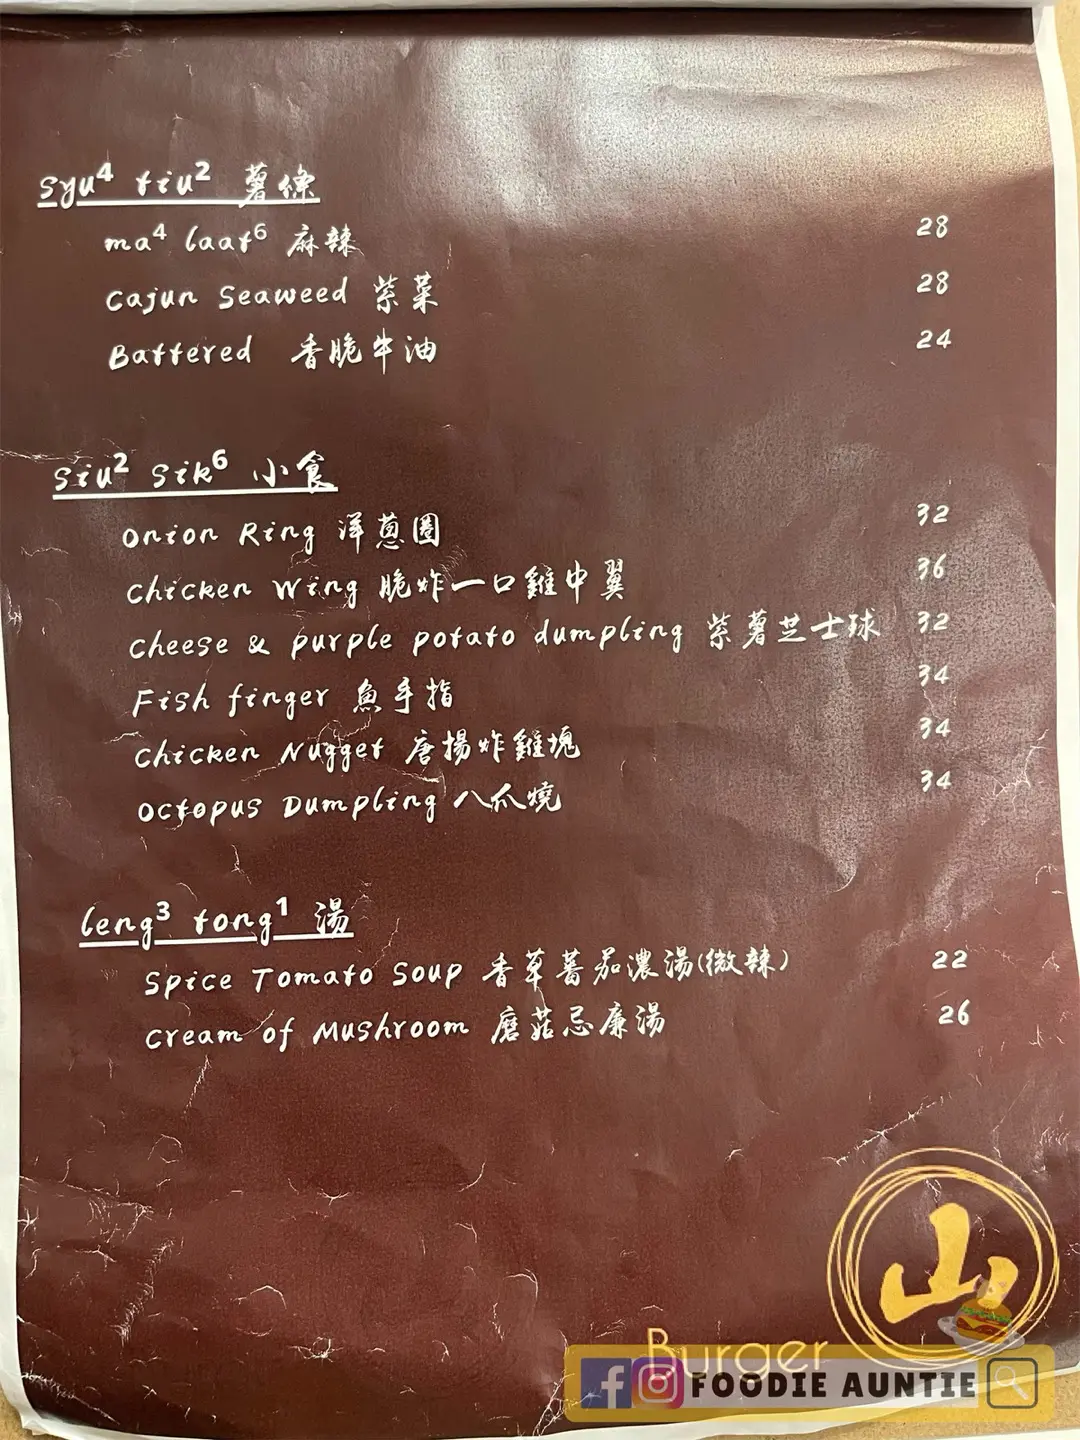 syu⁴ tiu² 薯條
ma⁴ laat⁶ 麻辣 28
Cajun Seaweed 紫菜 28
Battered 香脆牛油 24
siu² sik⁶ 小食
Onion Ring 洋蔥圈 32
Chicken Wing 脆炸一口雞中翼 36
Cheese & purple potato dumpling 紫薯芝士球 32
Fish finger 魚手指 34
Chicken Nugget 唐揚炸雞塊 34
Octopus Dumpling 八爪燒 34
leng³ tong¹ 湯
Spice Tomato Soup 香草蕃茄濃湯(微辣) 22
Cream of Mushroom 蘑菇忌廉湯 26
山
Burger
FOODIE AUNTIE